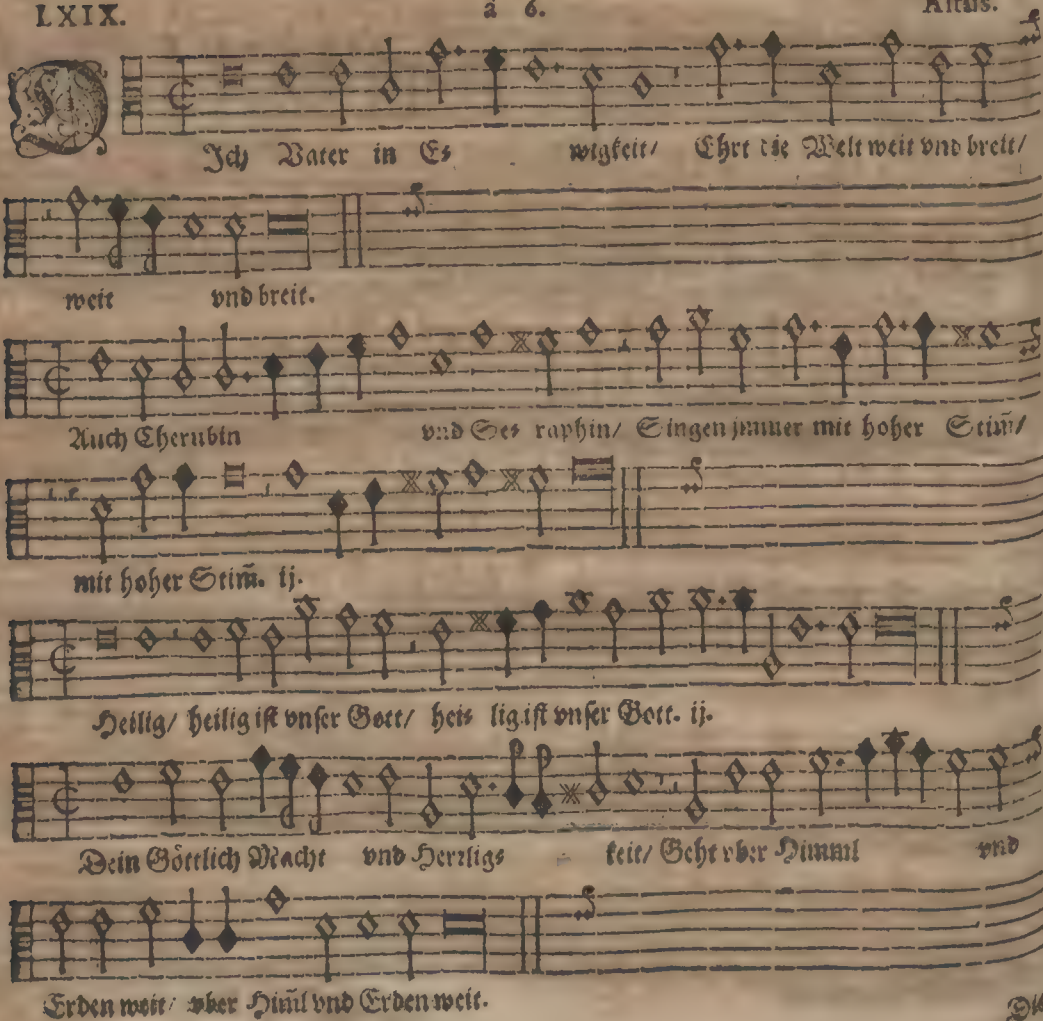 LXIX. à 6. Altus.
DJch Vater in E⸗ wigkeit/ Ehrt die Welt weit vnd breit/
weit vnd breit.
Auch Cherubin vnd Se⸗ raphin/ Singen jmmer mit hoher Stim̄/
mit hoher Stim̄. ij.
Heilig/ heilig ist vnser Gott/ hei⸗ lig ist vnser Gott. ij.
Dein Göttlich Macht vnd Herrlig⸗ keit/ Geht vber Himml vnd
Erden weit/ vber Him̄l vnd Erden weit.
Die